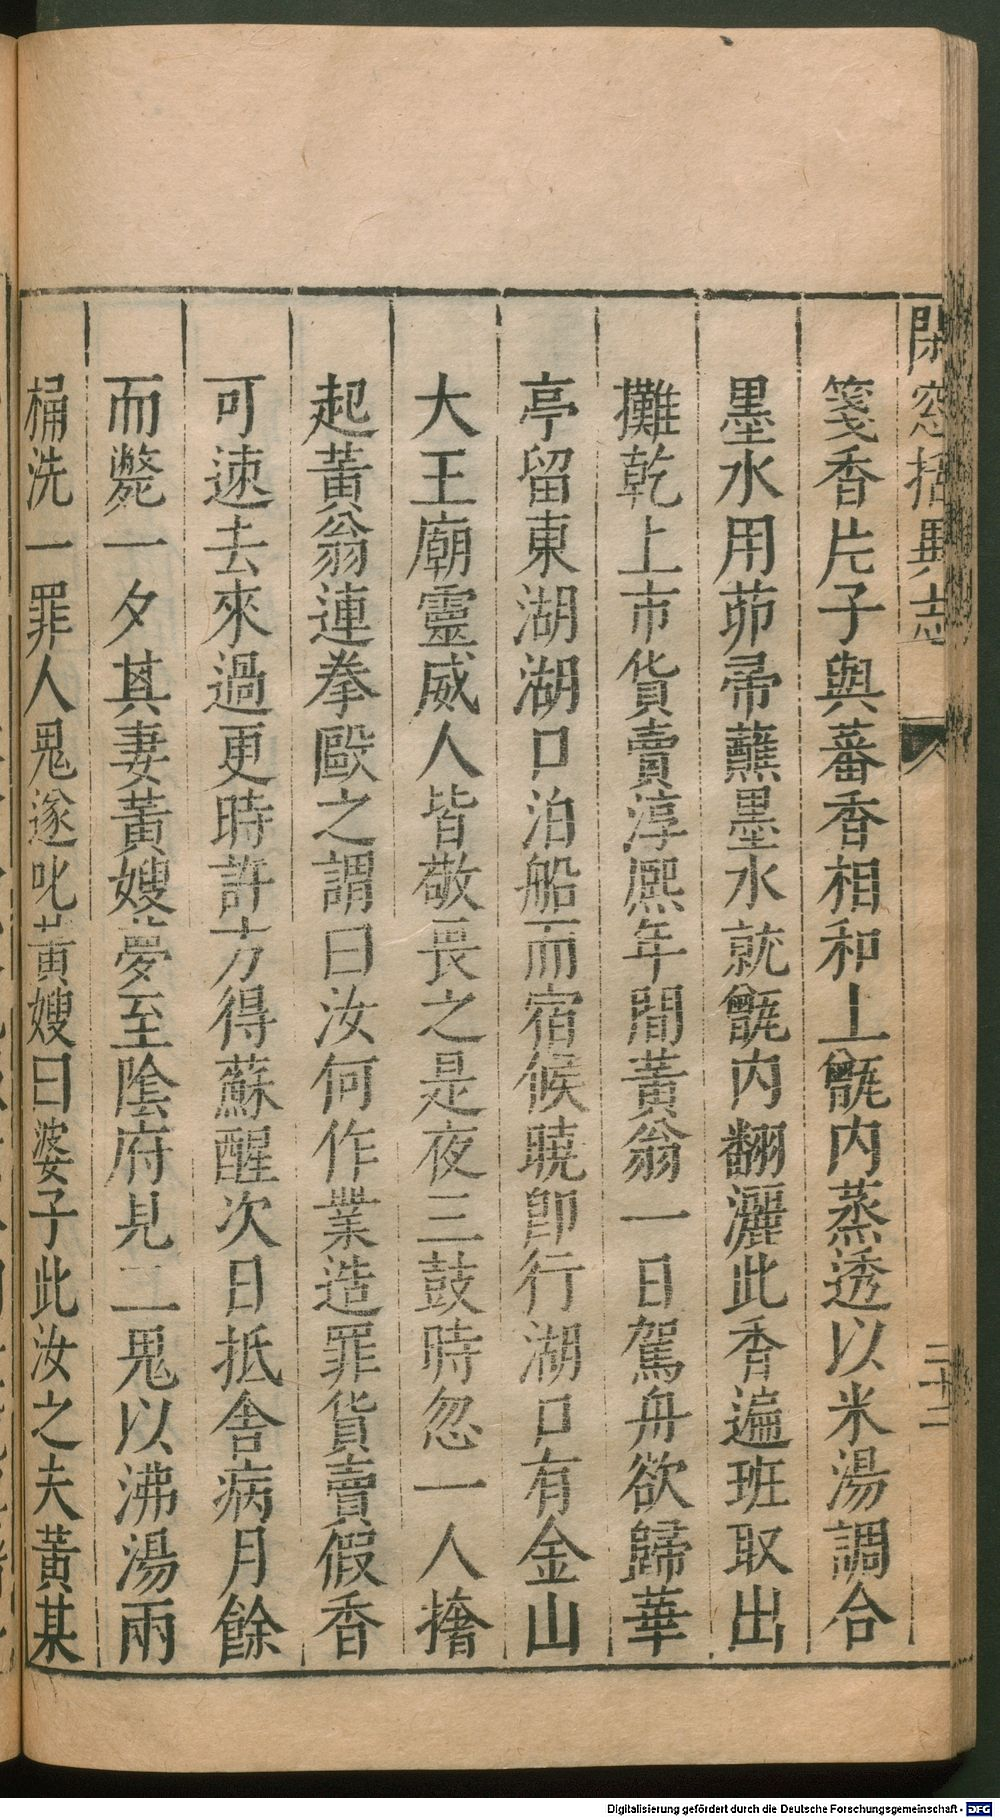 閑窓括異志
二十二
箋香片子與蕃香相和上甑內蒸透以米湯調合
墨水用茆帚蘸墨水就甑內翻灑此香遍班取出
攤乾上市貨賣淳熈年間黃翁一日駕舟欲歸華
亭留東湖湖口泊船而宿候曉卽行湖口有金山
大王廟靈威人皆敬畏之是夜三鼓時忽一人擔
起黃翁連拳毆之謂曰汝何作業造罪貨賣假香
可速去來過更時許方得蘇醒次日抵舍病月餘
而斃一夕其妻黃嫂夢至陰府見二鬼以沸湯兩
桶洗一罪人鬼遂叱黃嫂曰婆子此汝之夫黃某
Digitalisierung gefördert durch die Deutsche Forschungsgemeinschaft - DFG